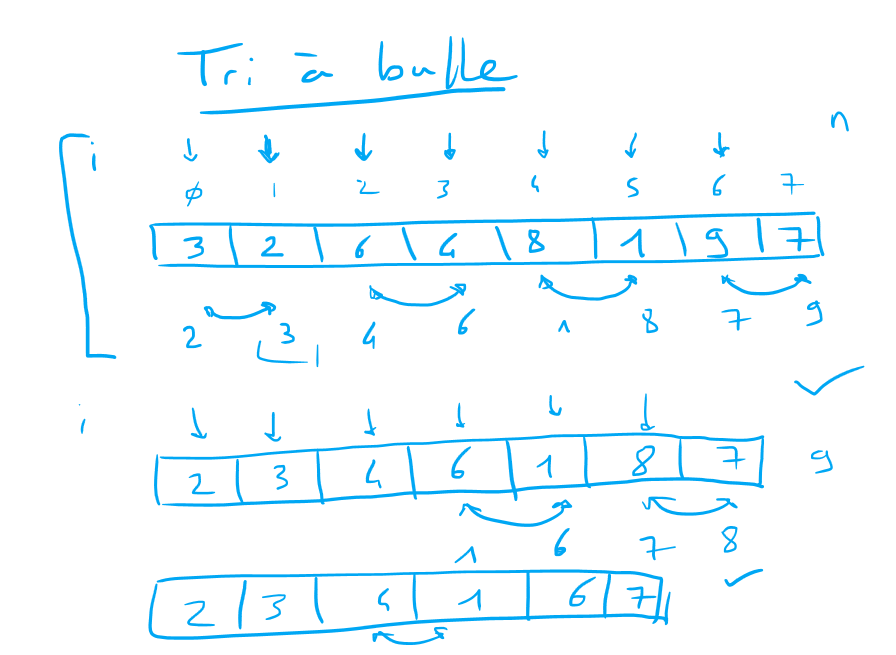 Tri à bulle
n
i
0 1 2 3 4 5 6 7
3 2 6 4 8 1 9 7
2 3 4 6 1 8 7 9
i
2 3 4 6 1 8 7 9
1 6 7 8
2 3 4 1 6 7